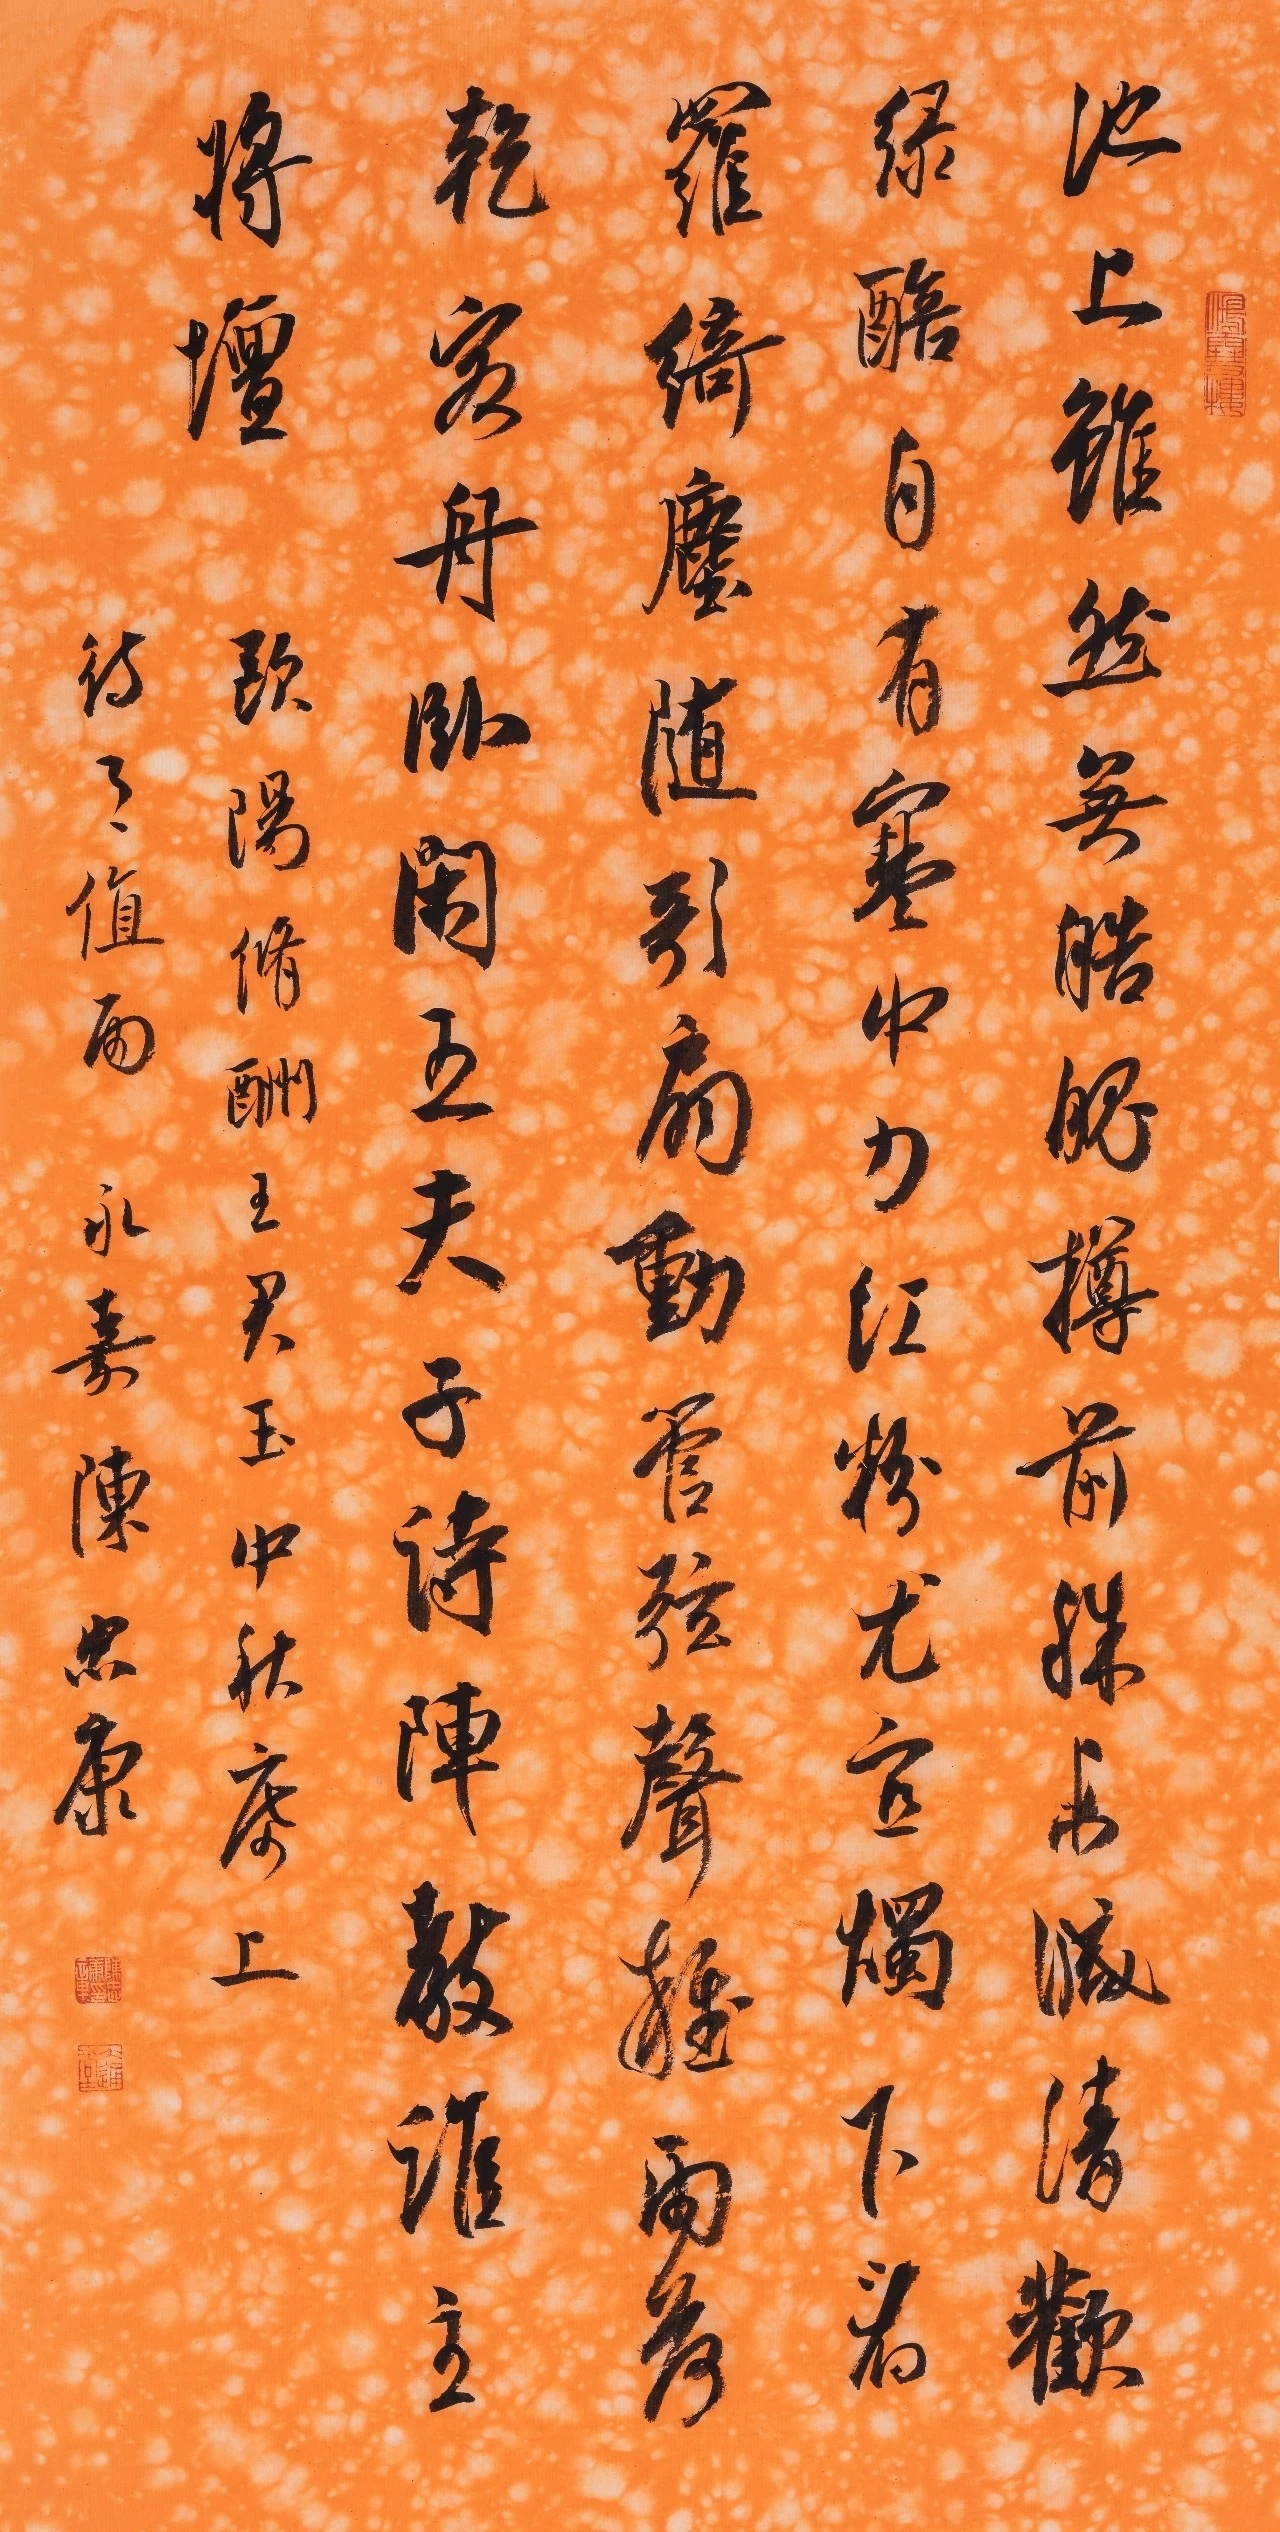 池上雖然無皓魄樽前殊未減清歡
綠醅自有寒中力紅粉尤宜燭下看
羅綺塵隨歌扇動管弦聲雜雨荷
乾客舟臥閑王夫子詩陣教誰主
將壇
歐陽脩酬王君玉中秋席上
待月值雨 永嘉陳忠康